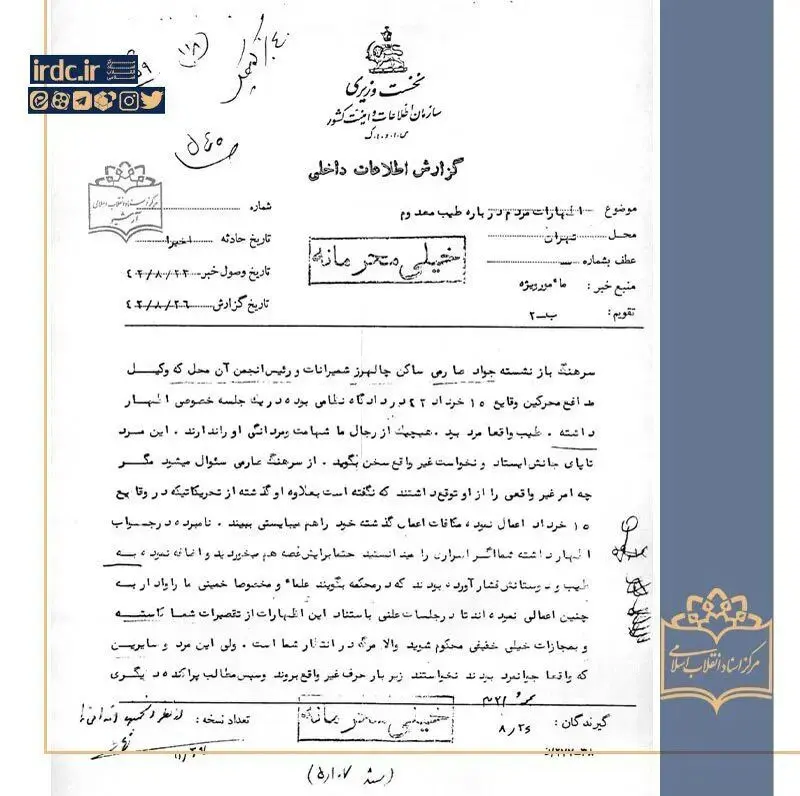 irdc.ir
نخست وزیری
سازمان اطلاعات و امنیت کشور
س.ا.و.ا.ک
گزارش اطلاعات داخلی
موضوع اظهارات مردم درباره طیب معدوم
محل تهران
عطف بشماره
منبع خبر : مأمور ویژه
تقویم : ب-۲
شماره
تاریخ حادثه اخیرا
تاریخ وصول خبر ۴۲/۸/۲۳
تاریخ گزارش ۴۲/۸/۲۶
خیلی محرمانه
مرکز اسناد انقلاب اسلامی
آرشیو
سرهنگ باز نشسته جواد صارمی ساکن چالهرز شمیرانات و رئیس انجمن آن محل که وکیل
مدافع محرکین وقایع ۱۵ خرداد ۴۲ در دادگاه نظامی بوده در یک جلسه خصوصی اظهار
داشته . طیب واقعا مرد بود . هیچیک از رجال ما شهامت ومردانگی او راندارند . این مرد
تاپای جانش ایستاد و نخواست غیر واقع سخن بگوید . از سرهنگ صارمی سئوال میشود مگر
چه امر غیر واقعی را از او توقع داشتند که نگفته است بعلاوه او گذشته از تحریکاتیکه در وقایع
۱۵ خرداد اعمال نموده مکافات اعمال گذشته خود را هم میبایستی ببیند . نامبرده در جواب
اظهار داشته شما اگر اسراری را میدانستید حتما برایش غصه هم میخوردید و اضافه نموده به
طیب و دوستانش فشار آورده بودند که در محکمه بگویند علماء و مخصوصا خمینی ما را وادار به
چنین اعمالی نموده اند تا در جلسات علنی باستناد این اظهارات از تقصیرات شما کاسته
و بمجازات خیلی خفیفی محکوم شوید والا مرگ در انتظار شما است . ولی این مرد و سایرین
که واقعا جوانمرد بودند نخواستند زیر بار حرف غیر واقع بروند وسپس مطالب پراکنده دیگری
گیرندگان :
۸/۲۶
خیلی محرمانه
تعداد نسخه :
مرکز اسناد انقلاب اسلامی